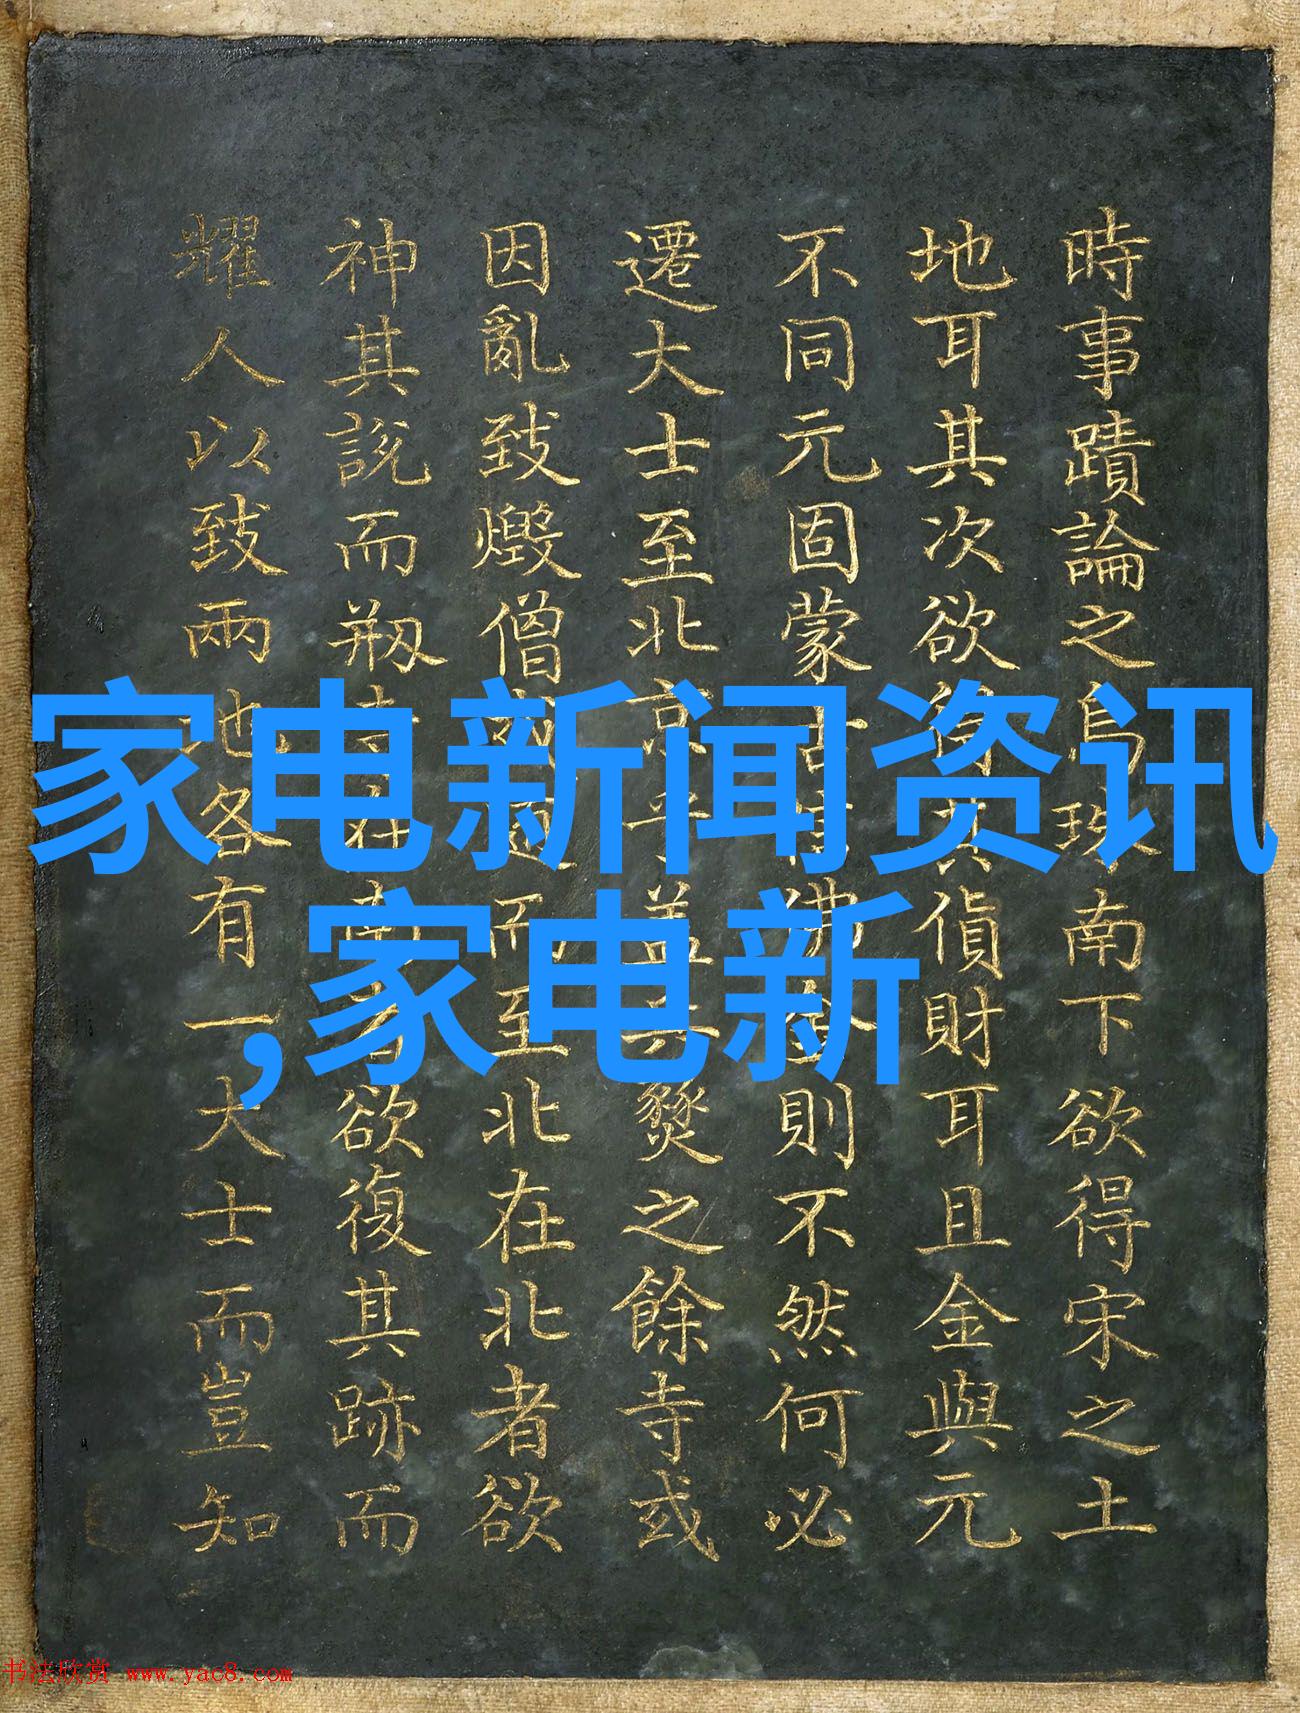 時事蹟論之烏珠南下欲得宋之土
地耳其次欲得其貨財耳且金與元
不同元固蒙古佛金則不然何必
遷大士至北京乎蓋兵燹之餘寺或
因亂致燬僧而至北在北者欲
神其說而剏寺在南者欲復其跡而
耀人以致兩地各有一大士而豈知
家电新闻资讯
,家电新
书法欣赏 www.yac8.com